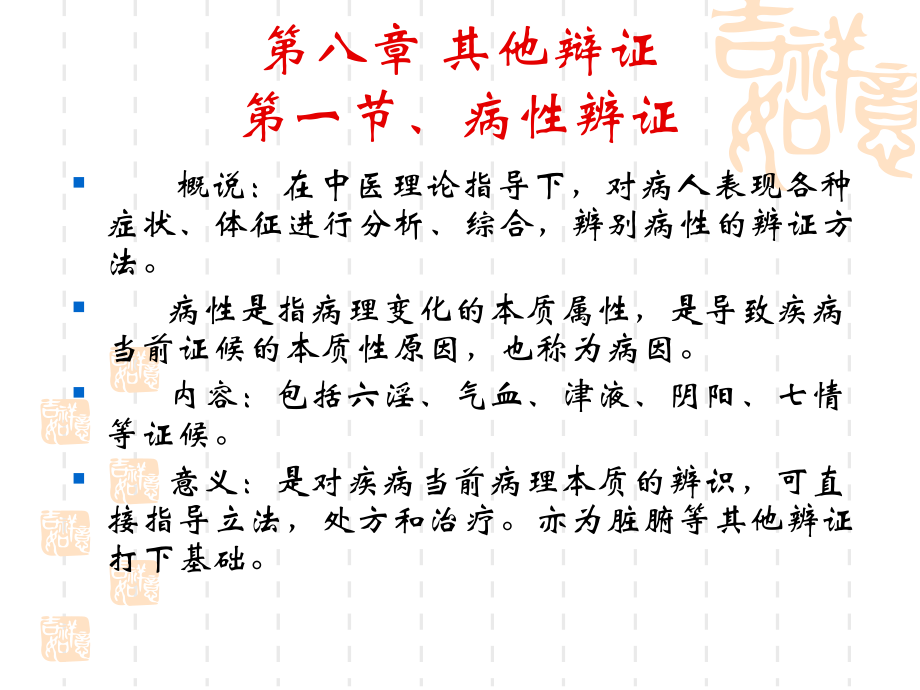 吉祥如意
第八章 其他辩证
第一节、病性辨证
概说：在中医理论指导下，对病人表现各种
症状、体征进行分析、综合，辨别病性的辨证方
法。
病性是指病理变化的本质属性，是导致疾病
当前证候的本质性原因，也称为病因。
吉祥如意
内容：包括六淫、气血、津液、阴阳、七情
等证候。
吉祥如意
意义：是对疾病当前病理本质的辨识，可直
接指导立法，处方和治疗。亦为脏腑等其他辨证
打下基础。
吉祥如意
吉祥如意
吉祥如意
吉祥如意